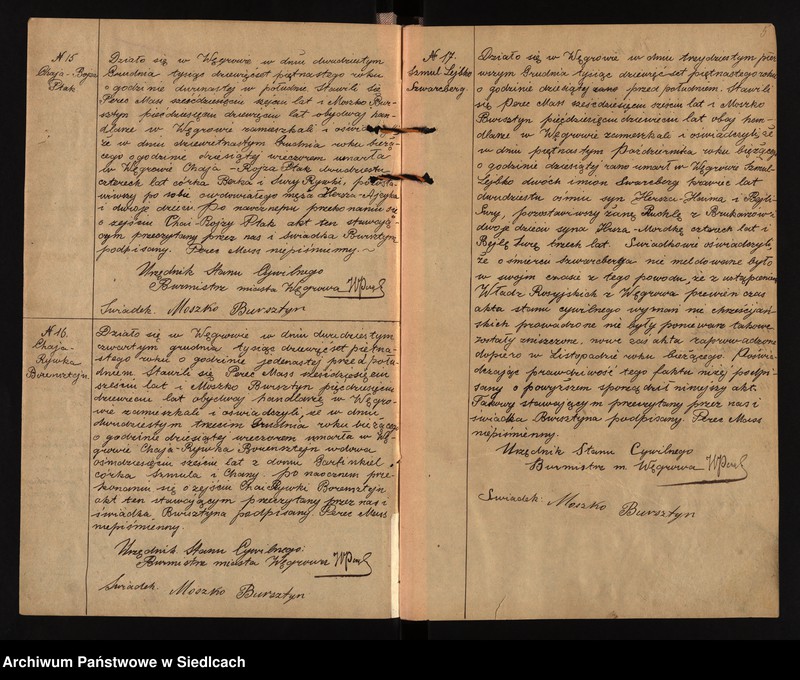 N 15
Chaja-Rojza
Ptak
Działo się w Węgrowie w dniu dwudziestym
Grudnia tysiąc dziewięćset piętnastego roku
o godzinie dwunastej w południe. Stawili się
Perec Mass sześćdziesięciu sześciu lat i Moszko Bur-
sztyn pięćdziesięciu dziewięciu lat obydwaj han-
dlarze w Węgrowie zamieszkali i oświadczyli
że w dniu dziewiętnastym Grudnia roku bieżą-
cego o godzinie dziesiątej wieczorem umarła
w Węgrowie Chaja-Rojza Ptak dwudziestu
czterech lat córka Berka i Sury Rywki, pozosta-
wiwszy po sobie owdowiałego męża Hersza-Ajzyka
i dwoje dzieci. Po naocznem przekonaniu się
o zejściu Chai-Rojzy Ptak akt ten stawają-
cym przeczytany przez nas i świadka Bursztyna
podpisany. Perec Mass niepiśmienny.
Urzędnik Stanu Cywilnego
Burmistrz miasta Węgrowa
Świadek: Moszko Bursztyn
N 16.
Chaja-
Rywka
Borensztejn.
Działo się w Węgrowie w dniu dwudziestym
czwartym grudnia tysiąc dziewięćset piętna-
stego roku o godzinie jedenastej przed połu-
dniem. Stawili się Perec Mass sześćdziesięciu
sześciu lat i Moszko Bursztyn pięćdziesięciu
dziewięciu lat obydwaj handlarze w Węgro-
wie zamieszkali i oświadczyli, że w dniu
dwudziestym trzecim Grudnia roku bieżącego
o godzinie dziesiątej wieczorem umarła w Wę-
growie Chaja-Rywka Borensztejn wdowa
ośmdziesięciu sześciu lat z domu Garfinkiel
córka Szmula i Chany. Po naocznem prze-
konaniu się o zejściu Chai Rywki Borensztejn
akt ten stawającym przeczytany przez nas i
świadka Bursztyna podpisany. Perec Mass
niepiśmienny.
Urzędnik Stanu Cywilnego:
Burmistrz miasta Węgrowa
Świadek: Moszko Bursztyn
N 17.
Szmul Lejbko
Szwarcberg.
Działo się w Węgrowie w dniu trzydziestym pier-
wszym Grudnia tysiąc dziewięćset piętnastego roku
o godzinie dziesiątej rano przed południem. Stawili
się Perec Mass sześćdziesięciu sześciu lat i Moszko
Bursztyn pięćdziesięciu dziewięciu lat obaj han-
dlarze w Węgrowie zamieszkali i oświadczyli, że
w dniu piętnastym Października roku bieżącego
o godzinie dziesiątej rano umarł w Węgrowie Szmul-
Lejbko dwóch imion Szwarcberg krawiec lat
dwudziestu ośmiu syn Herszu-Chaima i Bejli-
Sury, pozostawiwszy żonę Ruchlę z
dwoje dzieci syna Hersza-Mordkę czterech lat i
Bejlę Surę trzech lat. Świadkowie oświadczyli,
że o śmierci Szwarcberga nie meldowane było
w swojm czasie z tego powodu, że z ustąpieniem
Władz Rosyjskich z Węgrowa pewien czas
akta stanu cywilnego wyznań nie chrześcijań-
skich prowadzone nie były ponieważ takowe
zostały zniszczone, nowe zaś akta zaprowadzono
dopiero w Listopadzie roku bieżącego. Poświad-
czając prawdziwość tego faktu niżej podpi-
sany o powyższem sporządził niniejszy akt.
Takowy stawającym przeczytany przez nas i
świadka Bursztyna podpisany. Perec Mass
niepiśmienny.
Urzędnik Stanu Cywilnego
Burmistrz m. Węgrowa
Świadek: Moszko Bursztyn
Archiwum Państwowe w Siedlcach